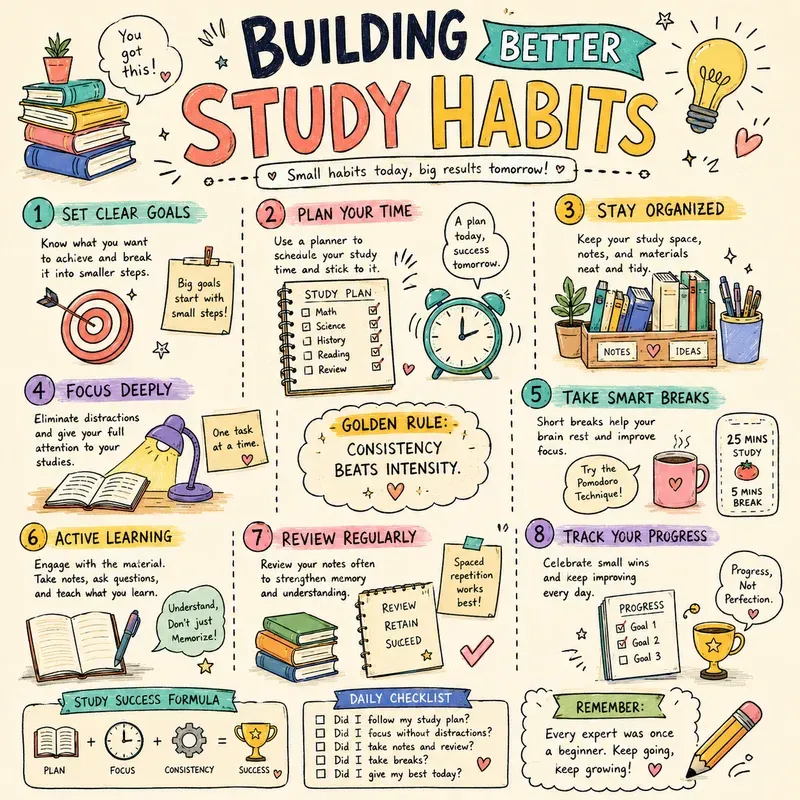 You
got
this!
BUILDING
BETTER
STUDY HABITS
Small habits today, big results tomorrow!
1 SET CLEAR GOALS
Know what you want
to achieve and break
it into smaller steps.
Big goals
start with
small steps!
2 PLAN YOUR TIME
Use a planner to
schedule your study
time and stick to it.
A plan
today,
success
tomorrow.
STUDY PLAN
Math
Science
History
Reading
Review
3 STAY ORGANIZED
Keep your study space,
notes, and materials
neat and tidy.
NOTES
IDEAS
4 FOCUS DEEPLY
Eliminate distractions
and give your full
attention to your
studies.
One task
at a time.
GOLDEN RULE:
CONSISTENCY
BEATS INTENSITY.
5 TAKE SMART BREAKS
Short breaks help your
brain rest and improve
focus.
Try the
Pomodoro
Technique!
25 MINS
STUDY
5 MINS
BREAK
6 ACTIVE LEARNING
Engage with the material.
Take notes, ask questions,
and teach what you learn.
Understand,
Don't just
Memorize!
7 REVIEW REGULARLY
Review your notes often
to strengthen memory
and understanding.
Spaced
repetition
works
best!
REVIEW
RETAIN
SUCEED
8 TRACK YOUR PROGRESS
Celebrate small wins
and keep improving
every day.
Progress,
Not
Perfection.
PROGRESS
Goal 1
Goal 2
Goal 3
STUDY SUCCESS FORMULA
+ + =
PLAN FOCUS CONSISTENCY SUCCESS
DAILY CHECKLIST
Did I follow my study plan?
Did I focus without distractions?
Did I take notes and review?
Did I take breaks?
Did I give my best today?
REMEMBER:
Every expert was once
a beginner. Keep going,
keep growing!